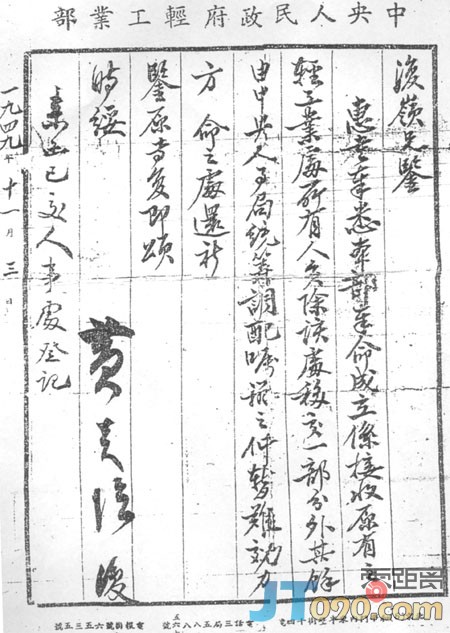 中央人民政府輕工業部
復嶺兄鑒
惠書奉悉本部奉命成立係接收原有之
輕工業處所有人員除該處移交一部分外其餘
由中央人事局統籌調配囑謀之件轉難效力
方 命之處還祈
鑒原专复即頌
時綏
黃炎培 復
來函已交人事處登記
一九四九年十一月三日
電話三局五八八
電報掛號六五三五號
JT090.com